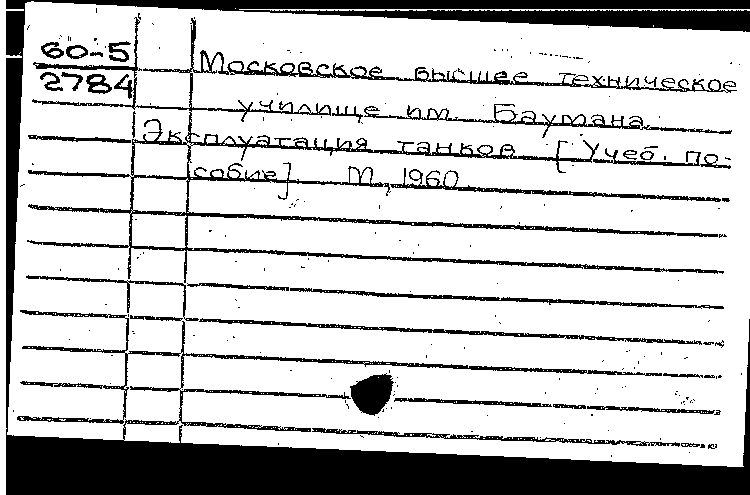 60-5
2784
Московское высшее техническое
училище им. Баумана.
Эксплуатация танков [Учеб. по-
собие]. М., 1960